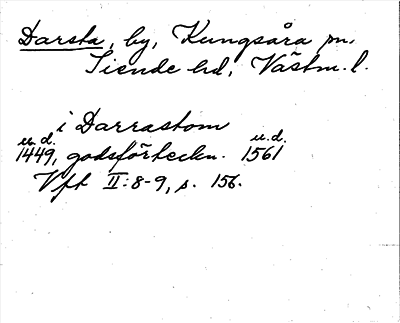 Darsta, by, Kungsåra sn,
Siende hd, Västm. l.
i Darrastom
u. d. u. d.
1449, godsförteckn. 1561
Vft II:8-9, s. 156.